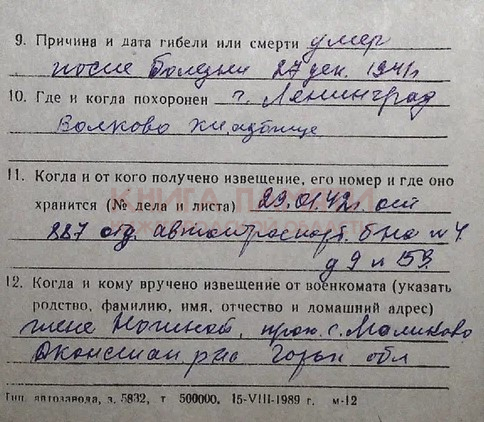 9. Причина и дата гибели или смерти умер
после болезни 27 дек. 1941г
10. Где и когда похоронен г. Ленинград
Волково кладбище
11. Когда и от кого получено извещение, его номер и где оно
хранится (№ дела и листа) 29.01.42г от
887 отд. автотранспорт. б-на № 4
д 9 л 159.
12. Когда и кому вручено извещение от военкомата (указать
родство, фамилию, имя, отчество и домашний адрес)
жене Ногиной, прож. с. Маликово
рна Горьк обл
Тип. автозавода, з. 5832, т 500000. 15-VIII-1989 г. м-12
КНИГА ПАМЯТИ